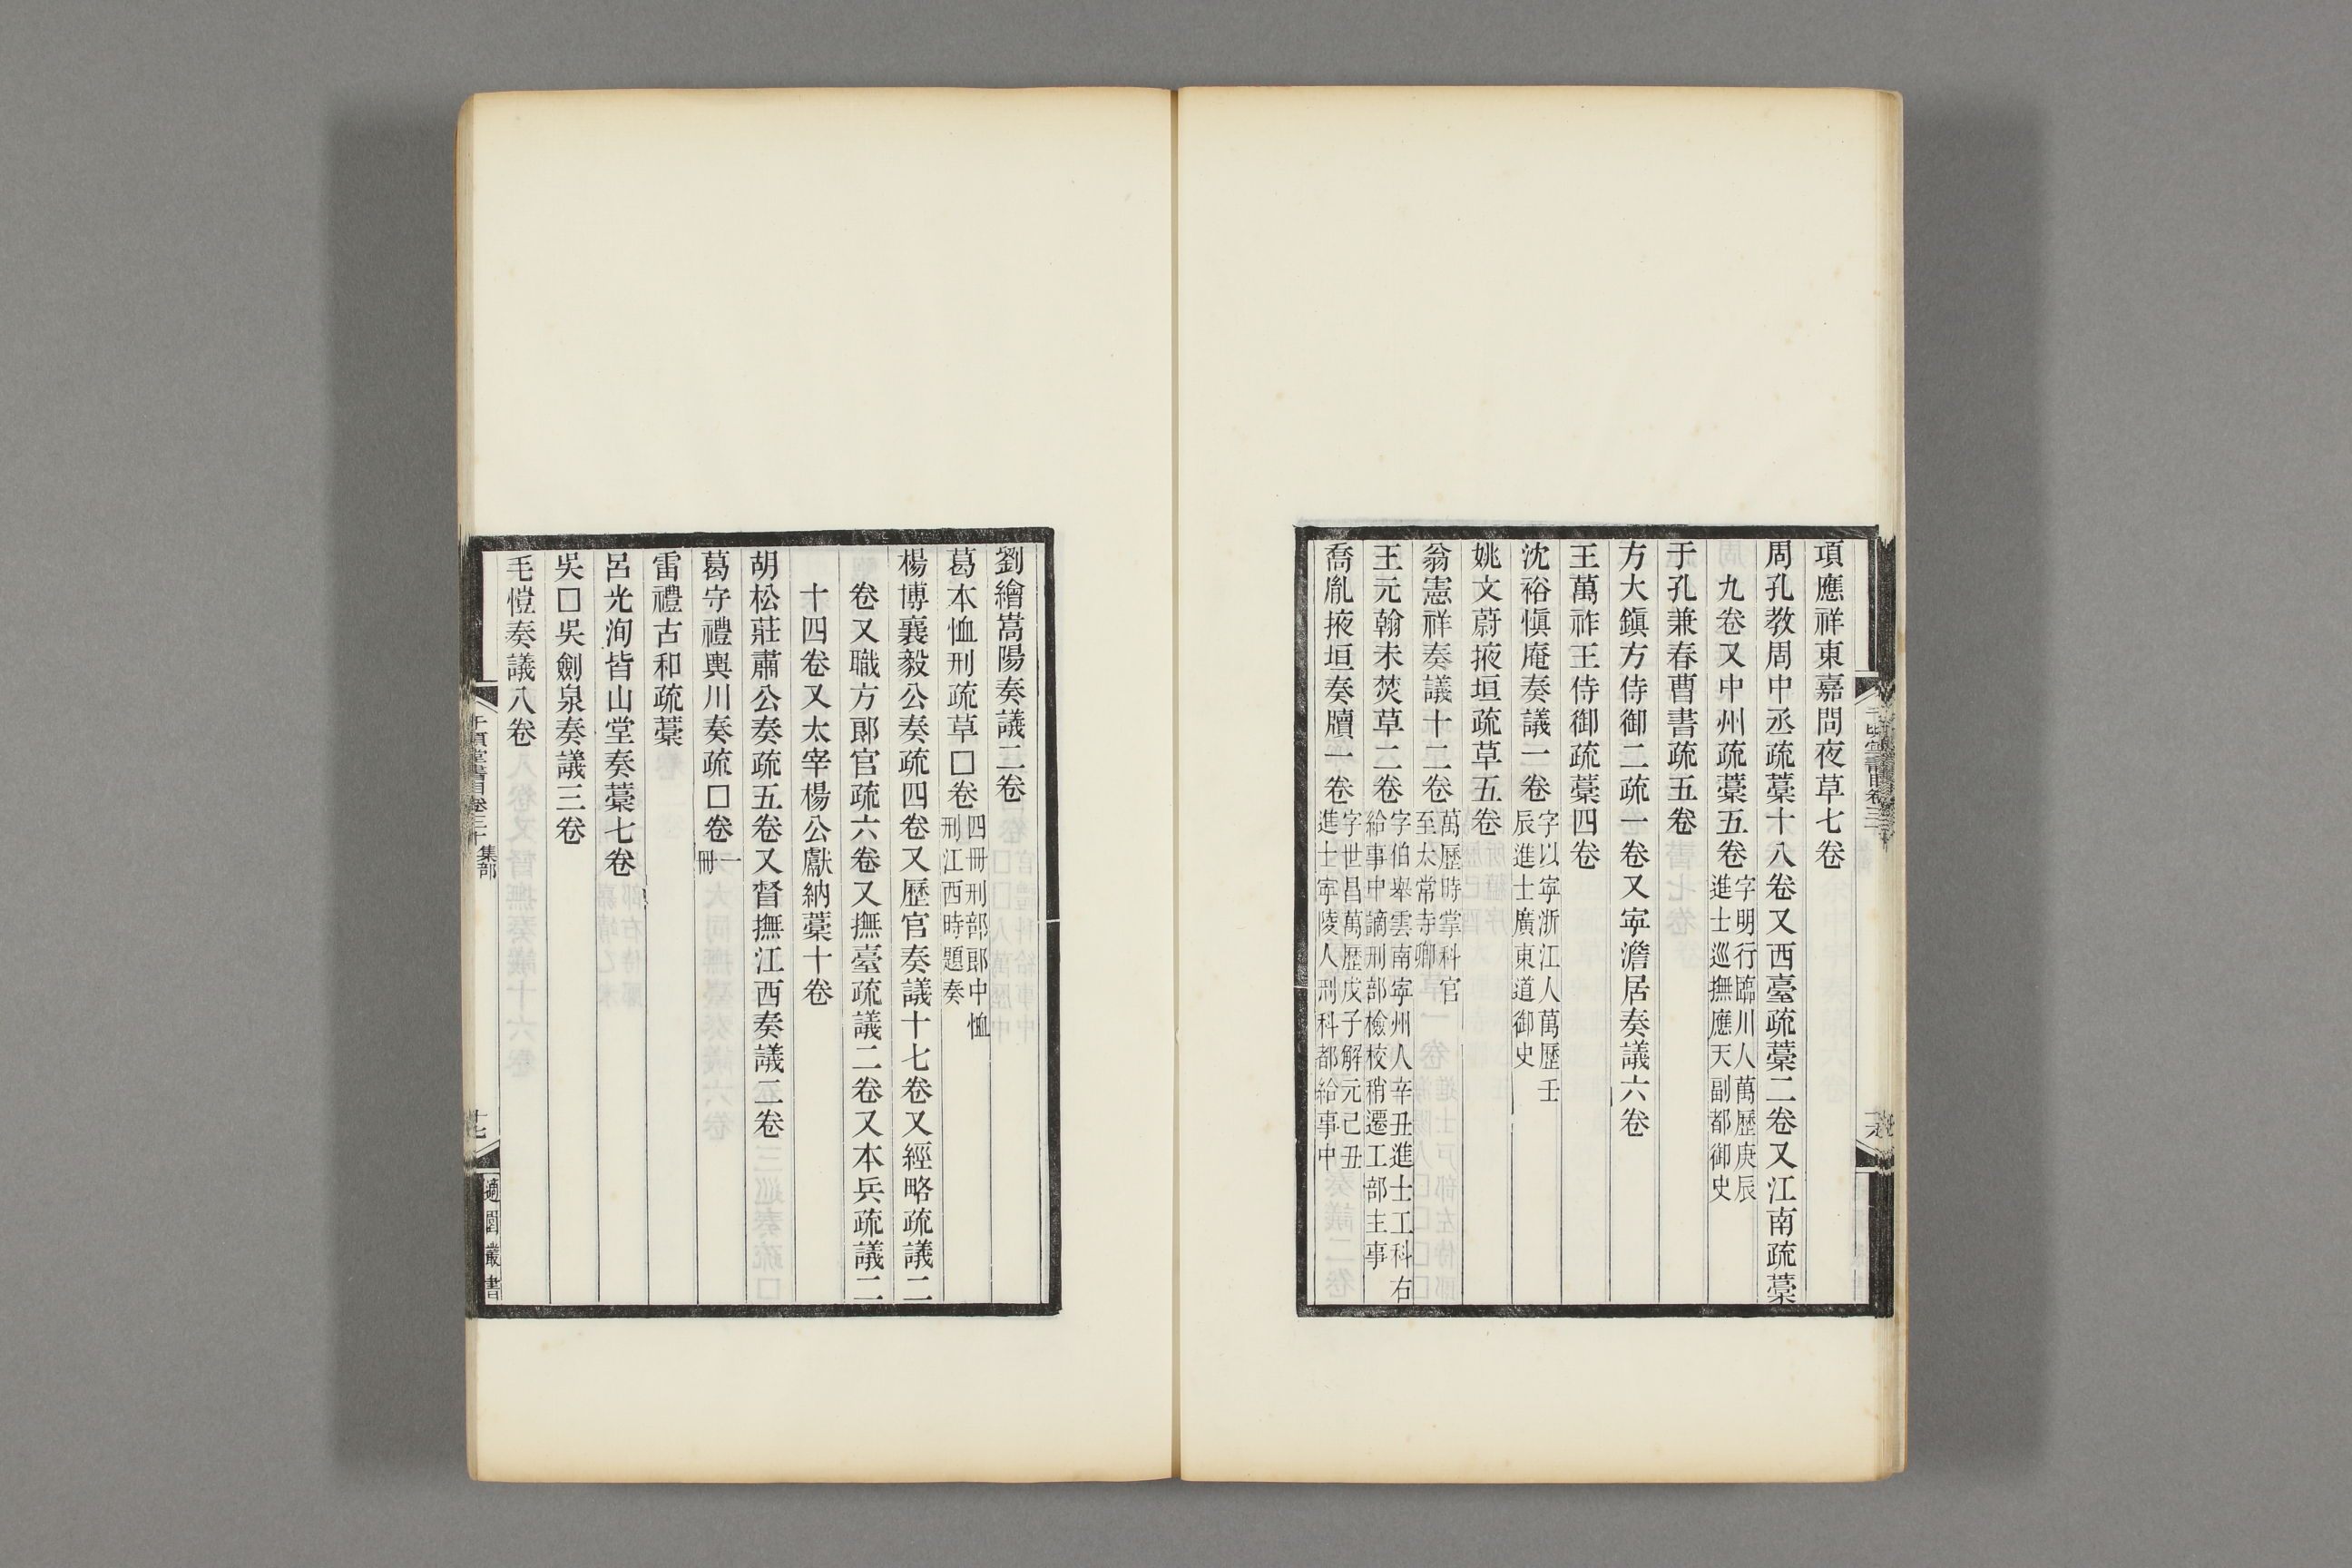 項應祥東嘉問夜草七卷
周孔教周中丞疏藁十八卷又西臺疏藁二卷又江南疏藁
九卷又中州疏藁五卷字明行臨川人萬歷庚辰
進士巡撫應天副都御史
于孔兼春曹書疏五卷
方大鎮方侍御二疏一卷又寜澹居奏議六卷
王萬祚王侍御疏藁四卷
沈裕愼庵奏議一卷字以寜浙江人萬歷壬
辰進士廣東道御史
姚文蔚掖垣疏草五卷
翁憲祥奏議十二卷萬歷時掌科官
至太常寺卿
王元翰未焚草二卷字伯舉雲南寜州人辛丑進士工科右
給事中謫刑部檢校稍遷工部主事
喬胤掖垣奏牘一卷字世昌萬歷戊子解元己丑
進士寜陵人刑科都給事中
劉繪嵩陽奏議二卷
葛本恤刑疏草□卷四冊刑部郎中恤
刑江西時題奏
楊博襄毅公奏疏四卷又歷官奏議十七卷又經略疏議二
卷又職方郎官疏六卷又撫臺疏議二卷又本兵疏議二
十四卷又太宰楊公獻納藁十卷
胡松莊肅公奏疏五卷又督撫江西奏議二卷
葛守禮與川奏疏□卷一
冊
雷禮古和疏藁
呂光洵皆山堂奏藁七卷
吳□吳劍泉奏議三卷
毛愷奏議八卷
千頃堂書目卷三十 集部
十七
適園叢書